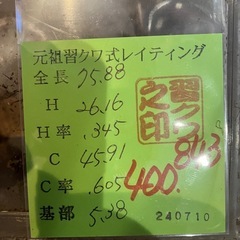 元祖習クワ式レイティング
全長 75.88
H 26.16
H率 .345
C 45.91
C率 .605
基部 5.38
習クワ之印
400.843
240710